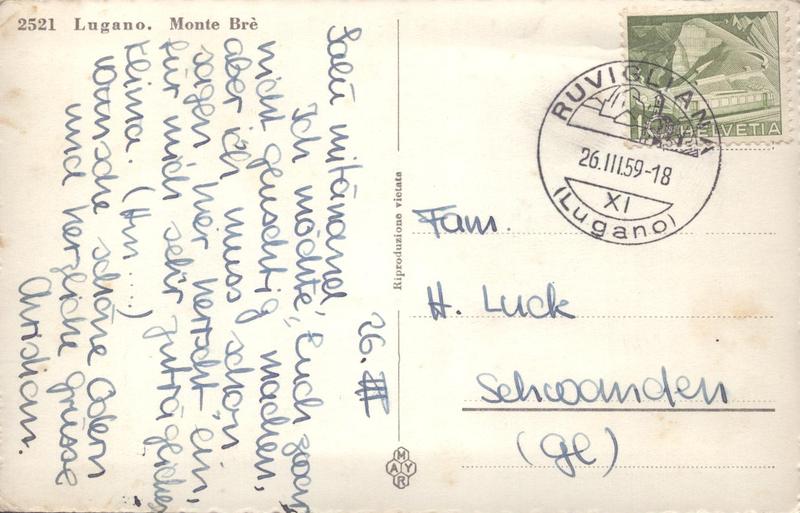 2521 Lugano. Monte Brè
26. III
Salü mitänand
Ich möchte Euch zwar
nicht gluschtig machen,
aber ich muss schon
sagen hier herrscht ein,
für mich sehr zuträgliches
Klima. (Hm....)
Wünsche schöne Ostern
und herzliche Grüsse
Christian.
Riproduzione vietata
MAYR
HELVETIA
RUVIGLIANA
26.III.59-18
XI
(Lugano)
Fam.
H. Luck
Schwanden
(Gl)